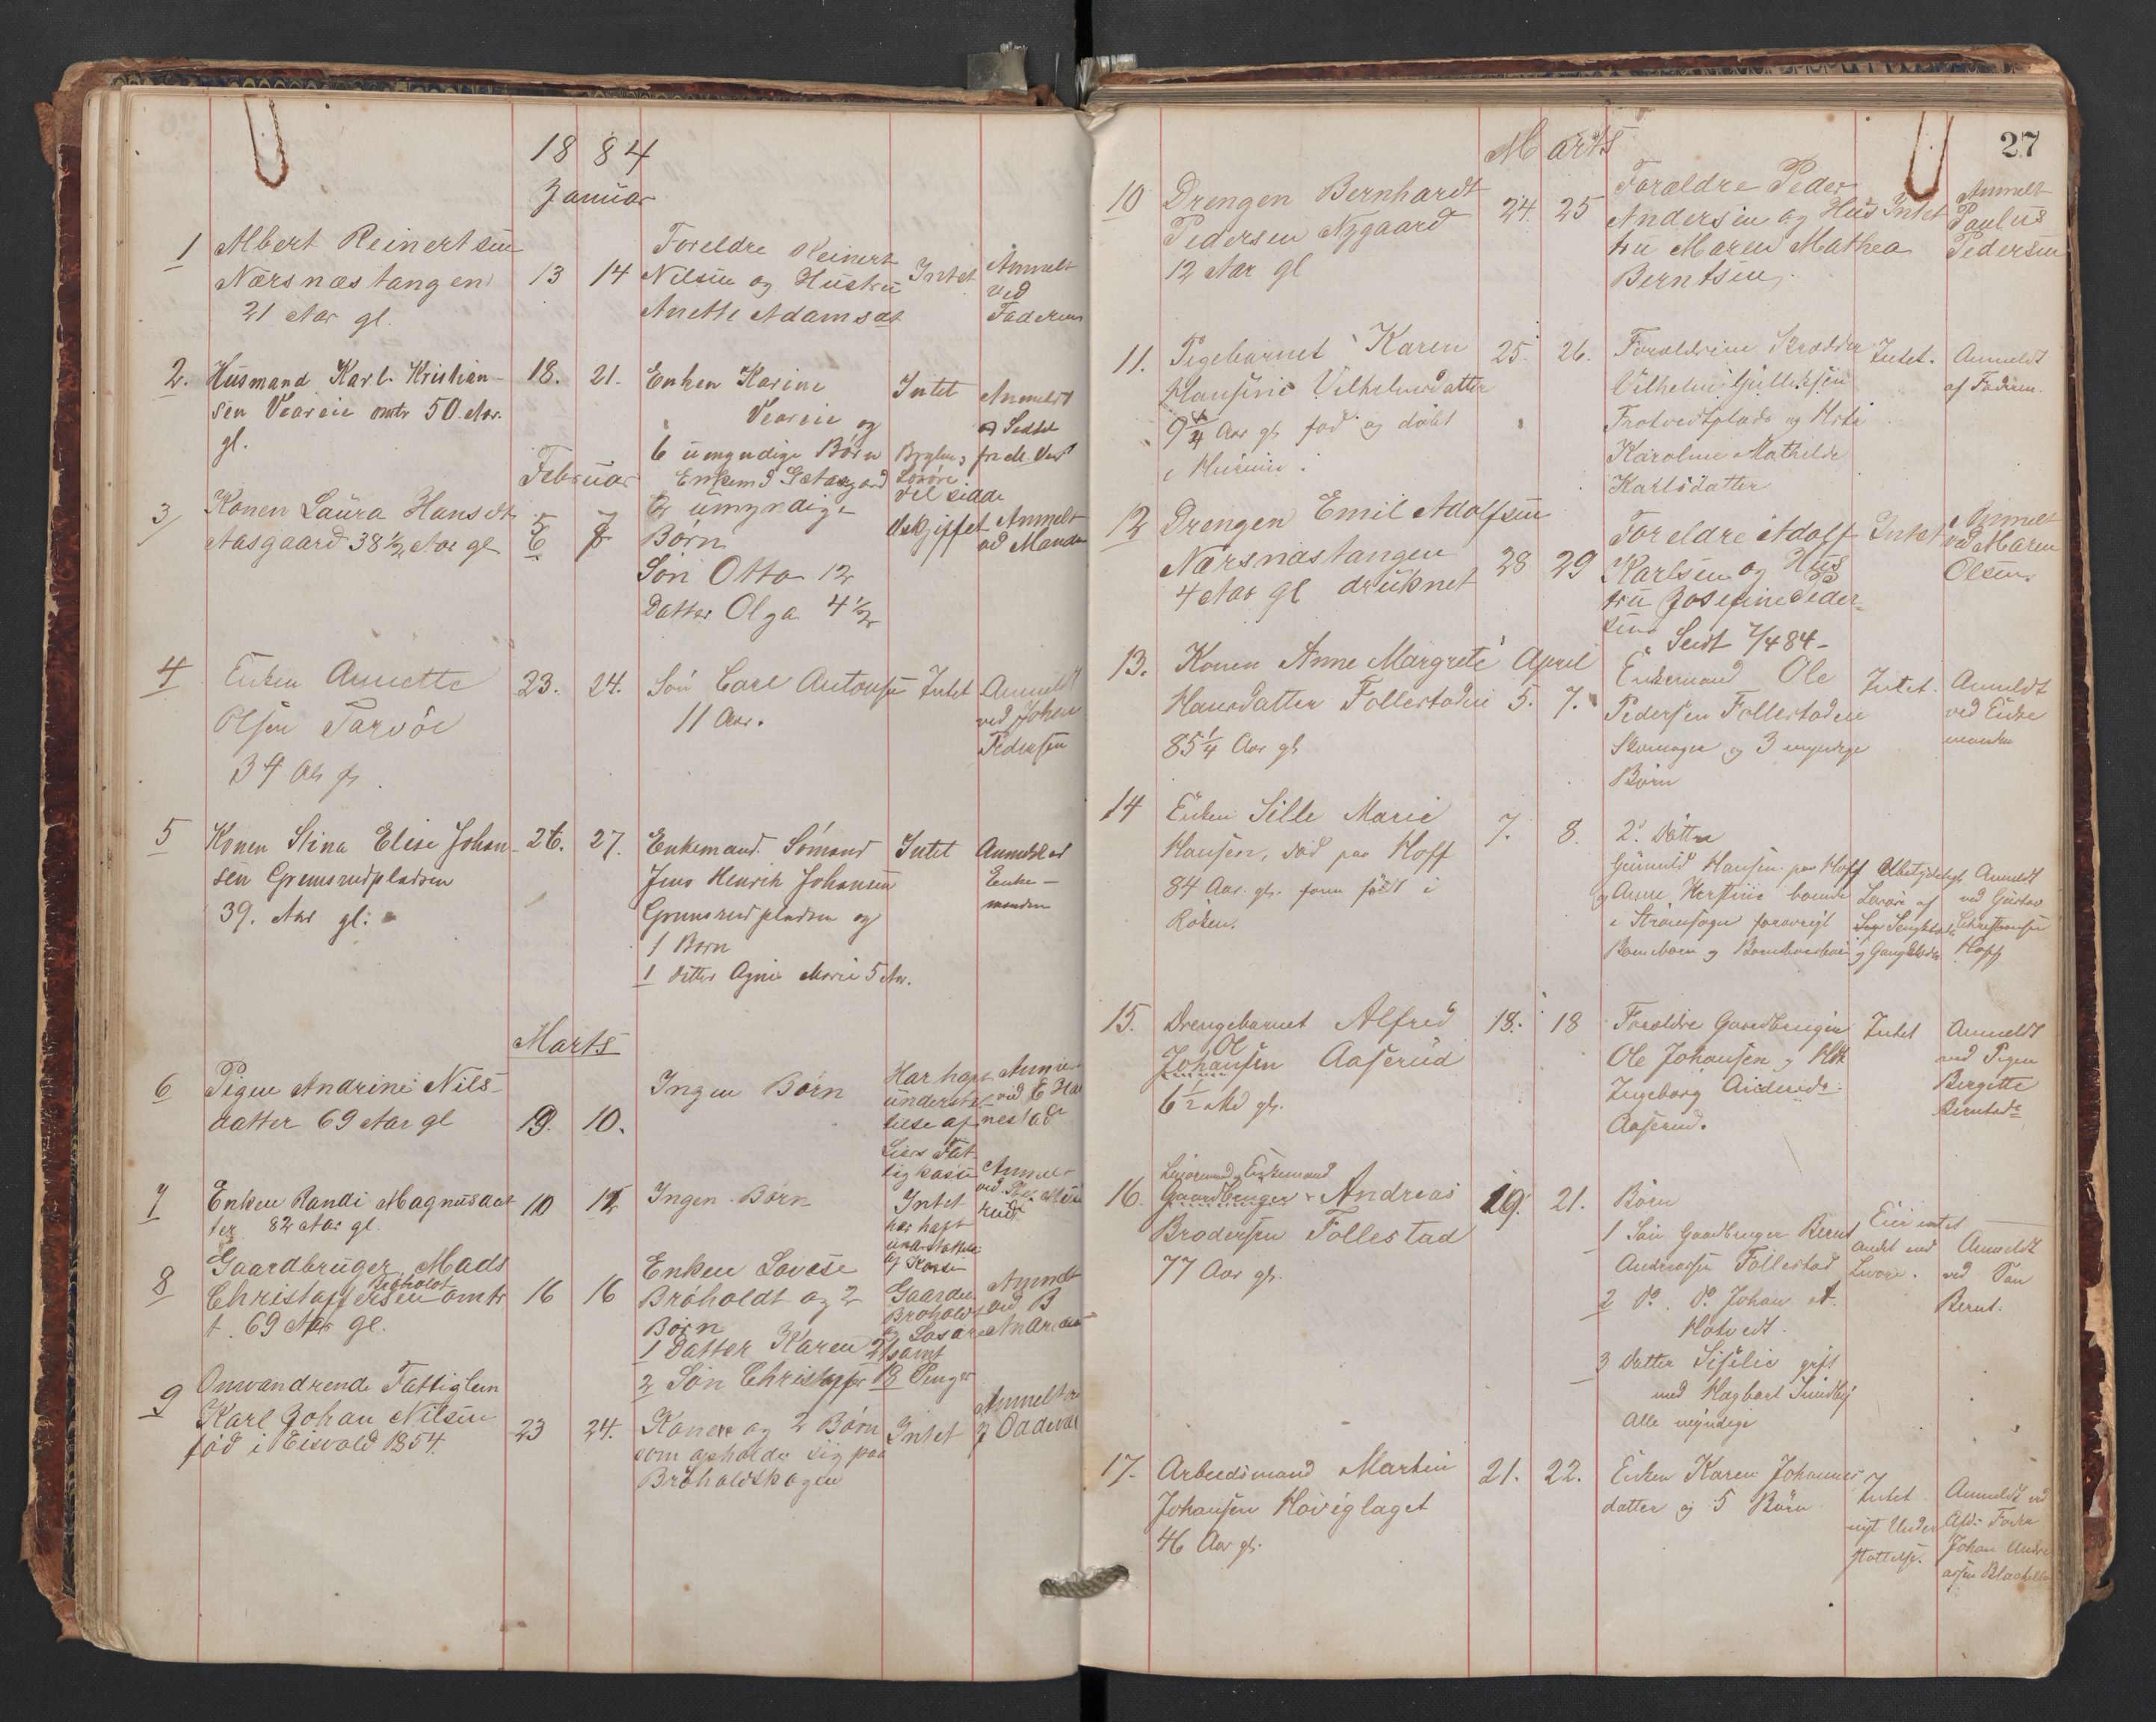 1884
Januar
1 Albert Reinertsen
Nærsnæstangen
21 Aar gl.
13 14
Foreldre Reinert
Nilsen og Hustru
Anette Adamsdt
Intet
Anmelt
ved
Faderen
2. Husmand Karl Kristian-
sen Vearen omtr 50 Aar.
gl.
18. 21.
Enken Karine
Vearen og
6 umyndige Børn
Intet
Anmeldt
Februar
3 Konen Laura Hansdt
Aasgaard 38 1/2 Aar gl
Enkemd
2 umyndige
Børn
Søn Otto 12
Datter Olga 4 1/2
Løsøre
Uskiftet
Anmelt
ved Manden
4 Enken Annette
Olsen Tarvöe
34
23. 24.
Søn Carl Antonsen
11 Aar.
Intet
Anmeldt
ved Johan
Pedersen
5 Konen Stina Elise Johan-
sen Grønsrudpladsen
39. Aar gl:
26. 27.
Enkemand Sømand
Jens Henrik Johansen
Grønsrudpladsen og
1 Barn
1 Datter Agne Marie 5 Aar.
Intet
Anmeldt ved
Enke-
manden
Marts
6 Pigen Andrine Nils-
datter 69 Aar gl
9. 10.
Ingen Børn
Har haft
understøt-
telse af
Liers Fat-
tigkasse
7 Enken Randi Magnusdat
ter 82 Aar gl.
10 12
Ingen Børn
Intet
har haft
8 Gaardbruger Mads
Christoffersen Brøholdt omtr
69 Aar gl.
16 16
Enken Lovise
Brøholdt og 2
Børn
1 Datter Karen 21
2 Søn Christoffer 18
Gaarden
Brøholdt
og Løsøre
samt
Penger
Anmelt
ved B
Andreasen
9 Omvandrende Fattiglem
Karl Johan Nilsen
fød i Eisvold 1854.
23 24.
Konen og 2 Børn
som opholder sig paa
Brøholdtskogen
Intet
27
Marts
10 Drengen Bernhardt
Pedersen Nygaard
12 Aar gl
24. 25
Foreldre Peder
Andersen og Hus
tru Maren Mathea
Berntsen.
Intet
Anmelt
Paulus
Pedersen
11. Pigebarnet Karen
Hansine Vilhelmsdatter
Aar gl. fød og døbt
i Hurum.
25. 26.
Forældrene Skrædder
Vilhelm Gulliksen
og
Karoline Mathilde
Karlsdatter
Intet.
Anmeldt
af Faderen.
12 Drengen Emil Adolfsen
Nærsnæstangen
4 Aar gl druknet
28 29
Foreldre Adolf
Karlsen og Hus
tru Josefine Peder-
sen
Intet
Anmelt
ved Maren
Olsen.
Sendt 7/4 84-
April
13. Konen Anne Margrete
Hansdatter Follestaden
85 1/4 Aar gl.
5. 7.
Enkemand Ole
Pedersen Follestaden
Skomager og 3 myndige
Børn
Intet.
Anmeldt
ved Enke
manden
14 Enken Sille Marie
Hansen, død paa Hoff
84 Aar. gl.
Röken.
7. 8.
2 Døttre
Gunnild Hansen paa Hoff
Løsøre af
og Gangklæder
Anmeldt
ved Gustav
Christiansen
Hoff
15. Drengebarnet Alfred
Ol
Johansen Aaserud
6 1/2 Md gl.
18. 18
Forældre Gaardbruger
Ole Johansen og Hst
Ingeborg Andersdt:
Aaserud.
Intet
Anmeldt
ved Pigen
Bergitte
Berntsdt
16. Enkemand
Gaardbruger Andreas
Brodersen Follestad
77 Aar gl.
19. 21.
Børn
1 Søn Gaardbruger Bernt
Andreassen Follestad
2 Do. Do. Johan A.
Hotvedt.
3 Datter Sisilie gift
med Hagbart
Alle myndige
Eier intet
andet end
Løsøre.
Anmeldt
ved Søn
Bernt.
17. Arbeidsmand Martin
Johansen Høviglaget
46 Aar gl.
21. 22.
Enken Karen Johannes
datter og 5 Børn
Intet
nyt Under
støttelse.
Anmeldt ved
Johan Andre
assen